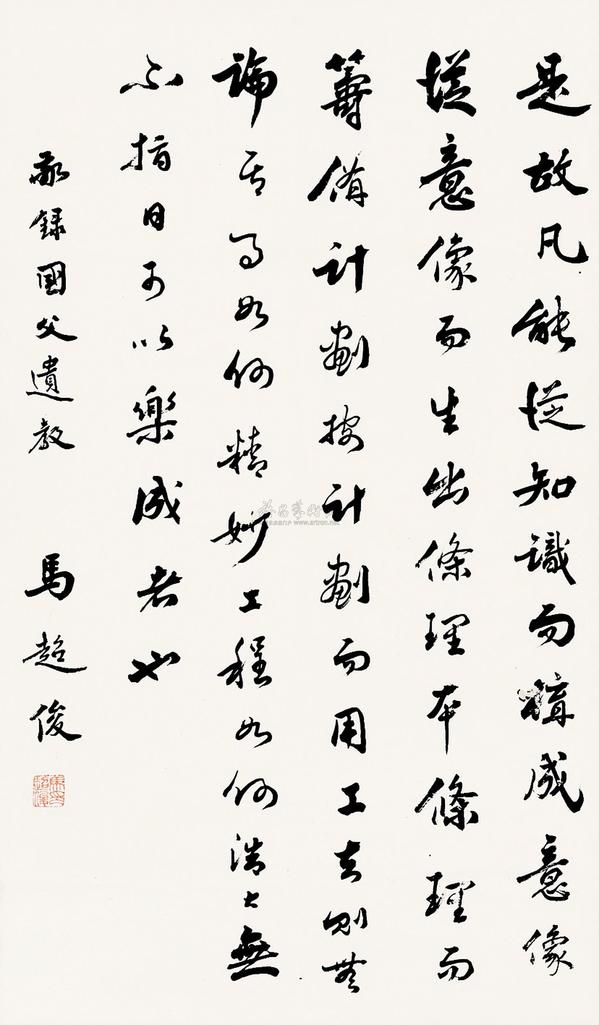 是故凡能從知識而構成意像
從意像而生出條理本條理而
籌備計劃按計劃而用工夫則無
論其事如何精妙工程如何浩大無
不指日可以樂成者也
敬錄國父遺教 馬超俊
www.artron.net